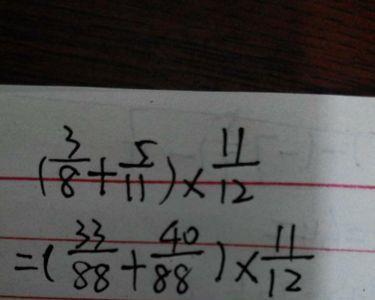 (3/8+5/11)×11/12
=(33/88+40/88)×11/12